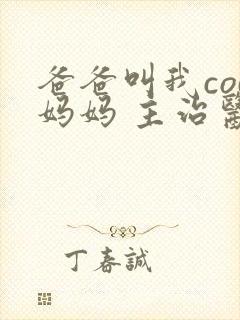 爸爸叫我co
妈妈 主治醫
丁春誠